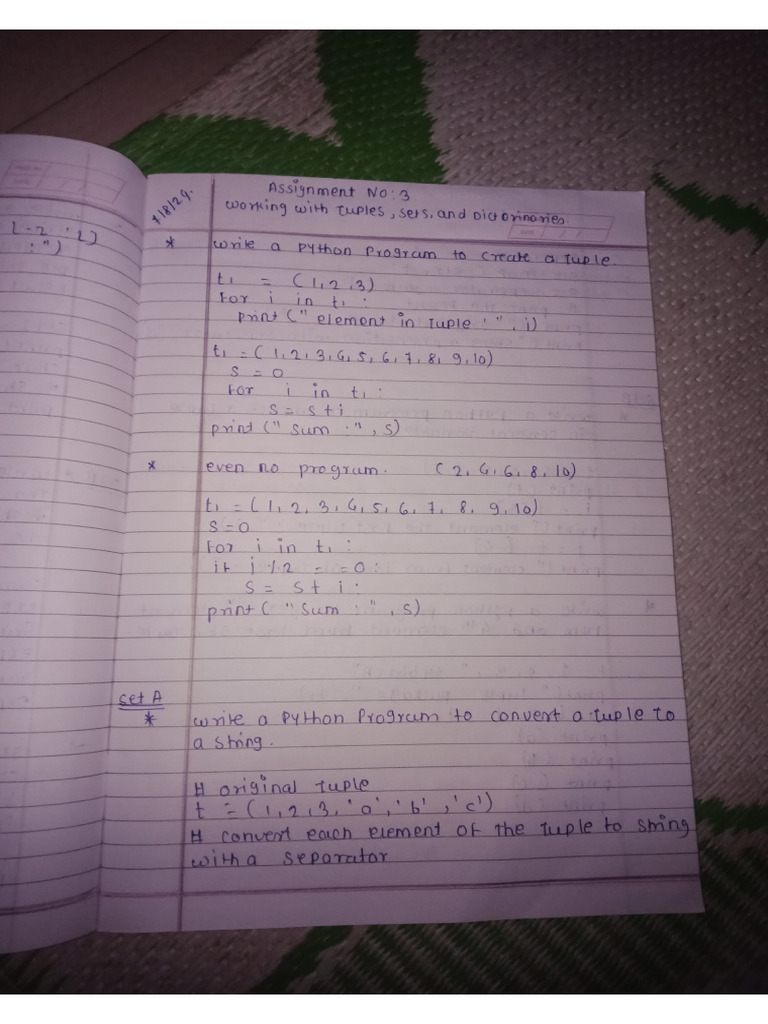 7/8/24.
Assignment No: 3
working with Tuples, sets, and Dictorinories
[-2 : 2]
: ")
* write a python program to create a tuple.
t1 = (1, 2, 3)
for i in t1 :
print (" element in tuple : ", i)
t1 = (1, 2, 3, 4, 5, 6, 7, 8, 9, 10)
s = 0
for i in t1 :
s = s + i
print (" sum : ", s)
* even no program. (2, 4, 6, 8, 10)
t1 = (1, 2, 3, 4, 5, 6, 7, 8, 9, 10)
s = 0
for i in t1 :
if i % 2 = = 0 :
s = s + i :
print ( " sum : ", s)
set A
* write a python program to convert a tuple to
a string.
# original tuple
t = (1, 2, 3, 'a', 'b', 'c')
# convert each element of the tuple to string
with a separator